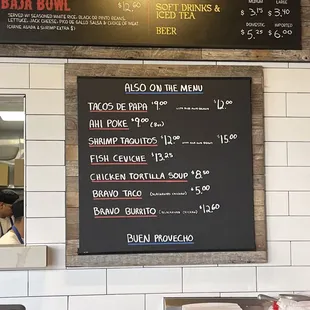 BAJA BOWL $12.60
SERVED W/ SEASONED WHITE RICE, BLACK OR PINTO BEANS,
LETTUCE, JACK CHEESE, PICO DE GALLO SALSA & CHOICE OF MEAT
SOFT DRINKS &
ICED TEA
BEER
MEDIUM LARGE
$3.15 $3.40
DOMESTIC IMPORTED
$5.25 $6.00
ALSO ON THE MENU
TACOS DE PAPA $9.00 $12.00
AHI POKE $9.00
SHRIMP TAQUITOS $12.00 $15.00
FISH CEVICHE $13.25
CHICKEN TORTILLA SOUP $8.50
BRAVO TACO $5.00
BRAVO BURRITO $12.60
BUEN PROVECHO